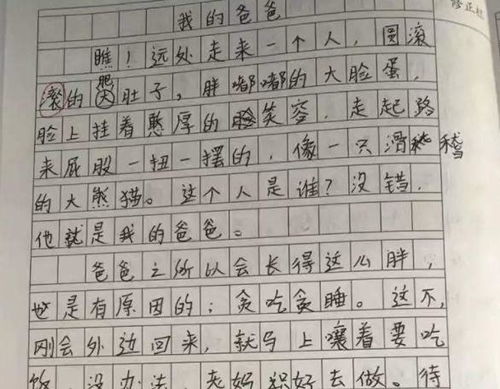 修正栏
我的爸爸
瞧！远处走来一个人，圆滚
滚的肥大肚子，胖嘟嘟的大脸蛋，
脸上挂着憨厚的笑容，走起路
来屁股一扭一摆的，像一只滑稽
的大熊猫。这个人是谁？没错，
他就是我的爸爸。
爸爸之所以会长得这么胖，
也是有原因的：贪吃贪睡。这不，
刚会外边回来，就马上嚷着要吃
饭，没办法，老妈只好去做，待